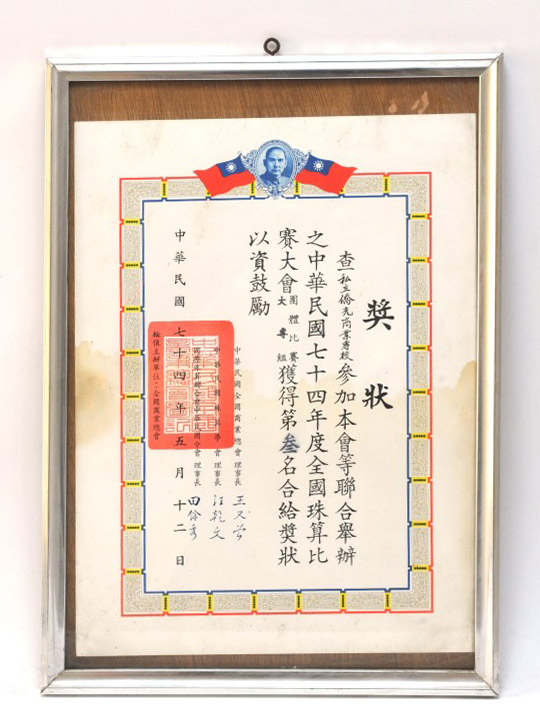 獎狀
查私立僑光商業專校參加本會等聯合舉辦
之中華民國七十四年度全國珠算比
賽大會團體比賽大專組獲得第叁名合給獎狀
以資鼓勵
中華民國全國商業總會 理事長
中華民國珠算學會 理事長 汪乾文
理事長
中華民國七十四年五月十二日
輪值主辦單位:全國商業總會